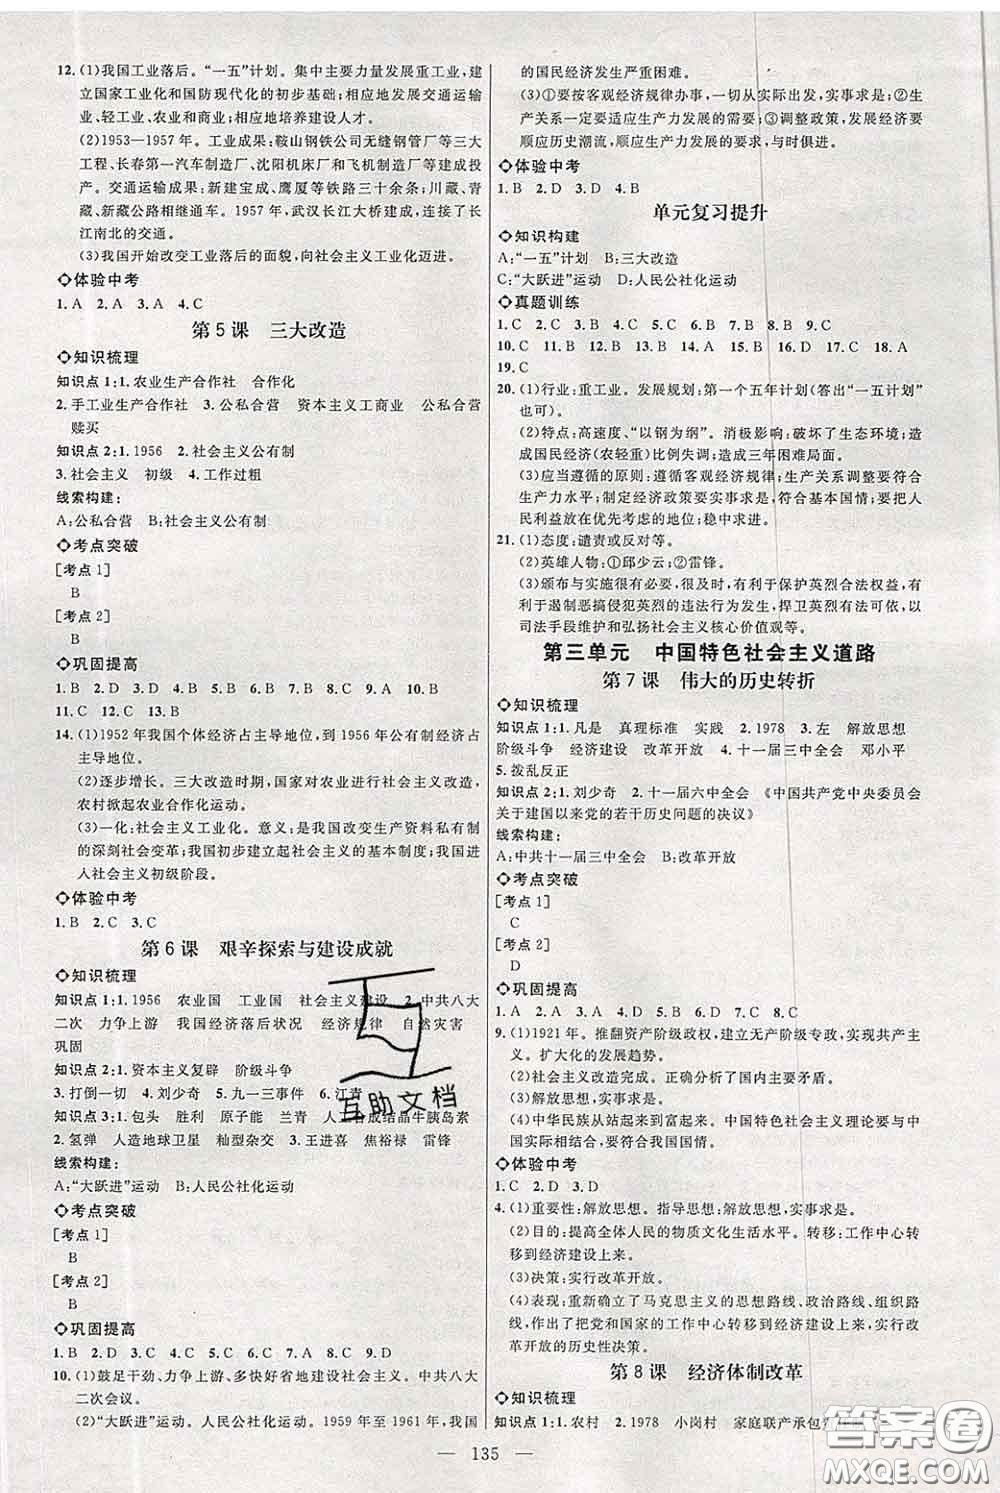 12. (1)我国工业落后。“一五”计划。集中主要力量发展重工业,建
立国家工业化和国防现代化的初步基础;相应地发展交通运输
业、轻工业、农业和商业;相应地培养建设人才。
(2)1953—1957年。工业成果:鞍山钢铁公司无缝钢管厂等三大
工程、长春第一汽车制造厂、沈阳机床厂和飞机制造厂等建成投
产。交通运输成果:新建宝成、鹰厦等铁路三十余条;川藏、青
藏、新藏公路相继通车。1957年,武汉长江大桥建成,连接了长
江南北的交通。
(3)我国开始改变工业落后的面貌,向社会主义工业化迈进。
体验中考
1. A 2. A 3. A 4. C
第5课 三大改造
知识梳理
知识点1:1. 农业生产合作社 合作化
2. 手工业生产合作社 3. 公私合营 资本主义工商业 公私合营
赎买
知识点2:1. 1956 2. 社会主义公有制
3. 社会主义 初级 4. 工作过粗
线索构建:
A:公私合营 B:社会主义公有制
考点突破
[考点1]
B
[考点2]
B
巩固提高
1. B 2. D 3. A 4. D 5. C 6. B 7. C 8. A 9. D 10. B
11. C 12. C 13. B
14. (1)1952年我国个体经济占主导地位,到1956年公有制经济占
主导地位。
(2)逐步增长。三大改造时期,国家对农业进行社会主义改造,
农村掀起农业合作化运动。
(3)一化:社会主义工业化。意义:是我国改变生产资料私有制
的深刻社会变革;我国初步建立起社会主义的基本制度;我国进
入社会主义初级阶段。
体验中考
1. B 2. C 3. C
第6课 艰辛探索与建设成就
知识梳理
知识点1:1. 1956 农业国 工业国 社会主义建设 2. 中共八大
二次 力争上游 我国经济落后状况 经济规律 自然灾害
巩固
知识点2:1. 资本主义复辟 阶级斗争
3. 打倒一切 4. 刘少奇 5. 九一三事件 6. 江青
知识点3:1. 包头 胜利 原子能 兰青 人工合成结晶牛胰岛素
2. 氢弹 人造地球卫星 籼型杂交 3. 王进喜 焦裕禄 雷锋
线索构建:
A:“大跃进”运动 B:人民公社化运动
考点突破
[考点1]
B
[考点2]
B
巩固提高
1. D 2. D 3. A 4. D 5. B 6. A 7. C 8. C 9. D
10. (1)鼓足干劲、力争上游、多快好省地建设社会主义。中共八大
二次会议。
(2)“大跃进”运动。人民公社化运动。1959年至1961年,我国
的国民经济发生严重困难。
(3)①要按客观经济规律办事,一切从实际出发,实事求是;②生
产关系一定要适应生产力发展的需要;③调整政策,发展经济要
顺应历史潮流,顺应生产力发展的要求,与时俱进。
体验中考
1. B 2. D 3. D 4. B
单元复习提升
知识构建
A:“一五”计划 B:三大改造
C:“大跃进”运动 D:人民公社化运动
真题训练
1. C 2. C 3. C 4. D 5. A 6. D 7. B 8. B 9. C
10. C 11. C 12. B 13. A 14. A 15. D 16. C 17. C 18. A
19. C
20. (1)行业:重工业。发展规划:第一个五年计划(答出“一五计划”
也可)。
(2)特点:高速度、“以钢为纲”。消极影响:破坏了生态环境;造
成国民经济(农轻重)比例失调;造成三年困难局面。
(3)应当遵循的原则:遵循客观经济规律;生产关系调整要符合
生产力水平;制定经济政策要实事求是,符合基本国情;要把人
民利益放在优先考虑的地位;稳中求进。
21. (1)态度:谴责或反对等。
(2)英雄人物:①邱少云;②雷锋。
(3)颁布与实施很有必要,很及时;有利于保护英烈合法权益,有
利于遏制恶搞侵犯英烈的违法行为发生,捍卫英烈有法可依,以
司法手段维护和弘扬社会主义核心价值观等。
第三单元 中国特色社会主义道路
第7课 伟大的历史转折
知识梳理
知识点1:1. 凡是 真理标准 实践 2. 1978 3. 左 解放思想
阶级斗争 经济建设 改革开放 4. 十一届三中全会 邓小平
5. 拨乱反正
知识点2:1. 刘少奇 2. 十一届六中全会 《中国共产党中央委员会
关于建国以来党的若干历史问题的决议》
线索构建:
A:中共十一届三中全会 B:改革开放
考点突破
[考点1]
C
[考点2]
D
巩固提高
1. A 2. D 3. A 4. A 5. D 6. B 7. C 8. C
9. (1)1921年。推翻资产阶级政权,建立无产阶级专政,实现共产主
义。扩大化的发展趋势。
(2)社会主义改造完成。正确分析了国内主要矛盾。
(3)改革开放。
(4)中华民族从站起来到富起来。中国特色社会主义理论要与中
国实际相结合,要符合我国国情。
体验中考
1. C 2. D 3. D
4. (1)重要性:解放思想。指导思想:解放思想,实事求是。
(2)目的:提高全体人民的物质文化生活水平。转移:工作中心转
移到经济建设上来。
(3)决策:实行改革开放。
(4)表现:重新确立了马克思主义的思想路线、政治路线、组织路
线,作出了把党和国家的工作中心转移到经济建设上来,实行改
革开放的历史性决策。
第8课 经济体制改革
知识梳理
知识点1:1. 农村 2. 1978 小岗村 家庭联产承包
— 135 —
互助文档
答案圈
MXQE.COM